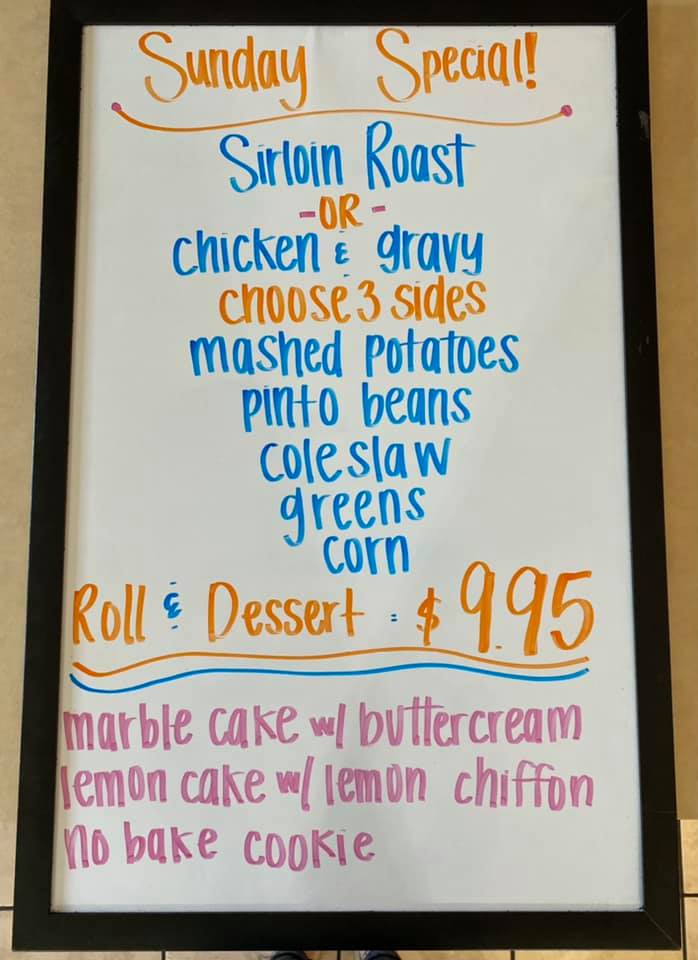 Sunday Special!
Sirloin Roast
-OR-
chicken & gravy
choose 3 sides
mashed potatoes
pinto beans
coleslaw
greens
corn
Roll & Dessert = $9.95
marble cake w/ buttercream
lemon cake w/ lemon chiffon
no bake cookie